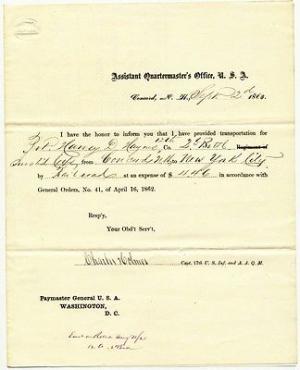 Assistant Quartermaster's Office, U. S. A.
Concord, N. H., Sept 2d 186
I have the honor to inform you that I have provided transportation for
Pvt. Henry D. Co. 2d Batt Regiment of
Invalid Corps, from Concord N.H. to New York City
by Railroad at an expense of $ 4 46 in accordance with
General Orders, No. 41, of April 16, 1862.
Resp'y,
Your Obd't Serv't,
Charles Holmes Capt. 17th U. S. Inf. and A. A. Q. M.
Paymaster General U. S. A.
WASHINGTON,
D. C.